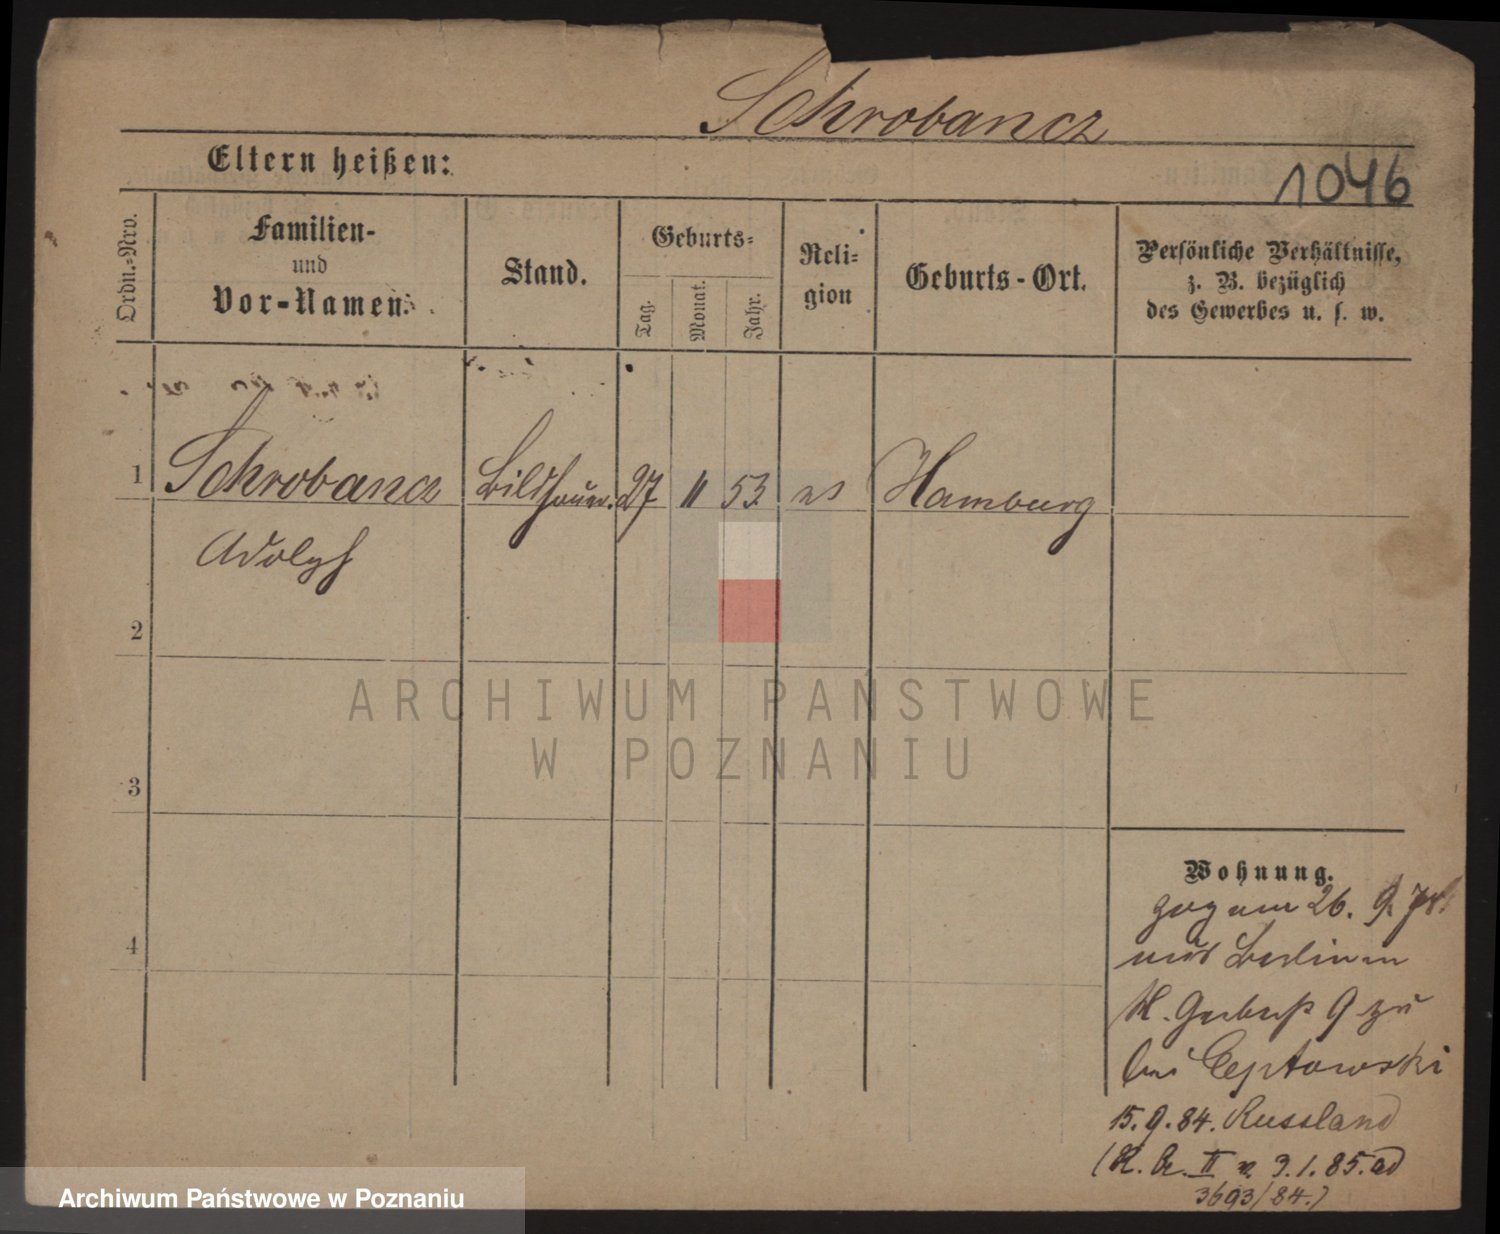 Schrobancz
Eltern heißen:
1046
Ordn.=Nro.
Familien-
und
Vor-Namen.
Stand.
Geburts=
Tag.
Monat.
Jahr.
Reli=
gion
Geburts-Ort.
Persönliche Verhältnisse,
z. B. bezüglich
des Gewerbes u. s. w.
1 Schrobancz Bildhauer. 27 11 53 Hamburg
Adolph
2
ARCHIWUM PAŃSTWOWE
W POZNANIU
3
Wohnung.
zog am 26. 9. 78.
aus Berlin
4
9 zu
bei Ceptowski
15. 9. 84. Russland
II v. 3.1.85. ad
3693/84.)
Archiwum Państwowe w Poznaniu